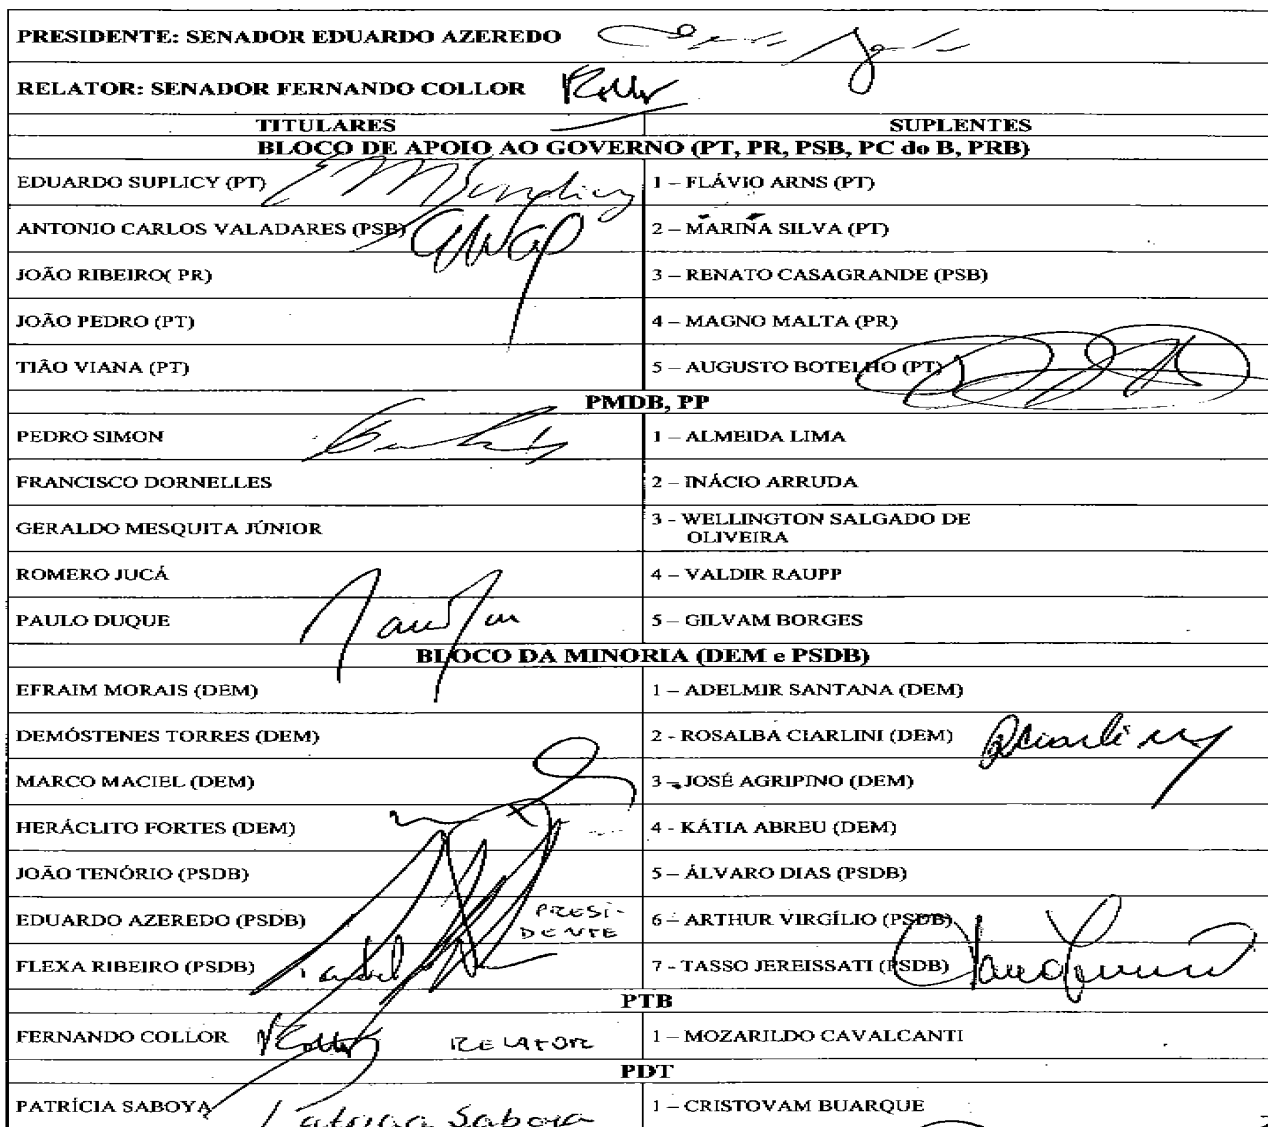 PRESIDENTE: SENADOR EDUARDO AZEREDO
RELATOR: SENADOR FERNANDO COLLOR Collor
TITULARES SUPLENTES
BLOCO DE APOIO AO GOVERNO (PT, PR, PSB, PC do B, PRB)
EDUARDO SUPLICY (PT) Suplicy 1 – FLÁVIO ARNS (PT)
ANTONIO CARLOS VALADARES (PSB) 2 – MARINA SILVA (PT)
JOÃO RIBEIRO( PR) 3 – RENATO CASAGRANDE (PSB)
JOÃO PEDRO (PT) 4 – MAGNO MALTA (PR)
TIÃO VIANA (PT) 5 – AUGUSTO BOTELHO (PT)
PMDB, PP
PEDRO SIMON 1 – ALMEIDA LIMA
FRANCISCO DORNELLES 2 – INÁCIO ARRUDA
GERALDO MESQUITA JÚNIOR 3 - WELLINGTON SALGADO DE
OLIVEIRA
ROMERO JUCÁ 4 – VALDIR RAUPP
PAULO DUQUE 5 – GILVAM BORGES
BLOCO DA MINORIA (DEM e PSDB)
EFRAIM MORAIS (DEM) 1 – ADELMIR SANTANA (DEM)
DEMÓSTENES TORRES (DEM) 2 - ROSALBA CIARLINI (DEM) RCiarlini
MARCO MACIEL (DEM) 3 – JOSÉ AGRIPINO (DEM)
HERÁCLITO FORTES (DEM) 4 - KÁTIA ABREU (DEM)
JOÃO TENÓRIO (PSDB) 5 – ÁLVARO DIAS (PSDB)
EDUARDO AZEREDO (PSDB) PRESI-
DENTE 6 – ARTHUR VIRGÍLIO (PSDB)
FLEXA RIBEIRO (PSDB) 7 - TASSO JEREISSATI (PSDB)
PTB
FERNANDO COLLOR Collor RELATOR 1 – MOZARILDO CAVALCANTI
PDT
PATRÍCIA SABOYA Patricia Saboya 1 – CRISTOVAM BUARQUE